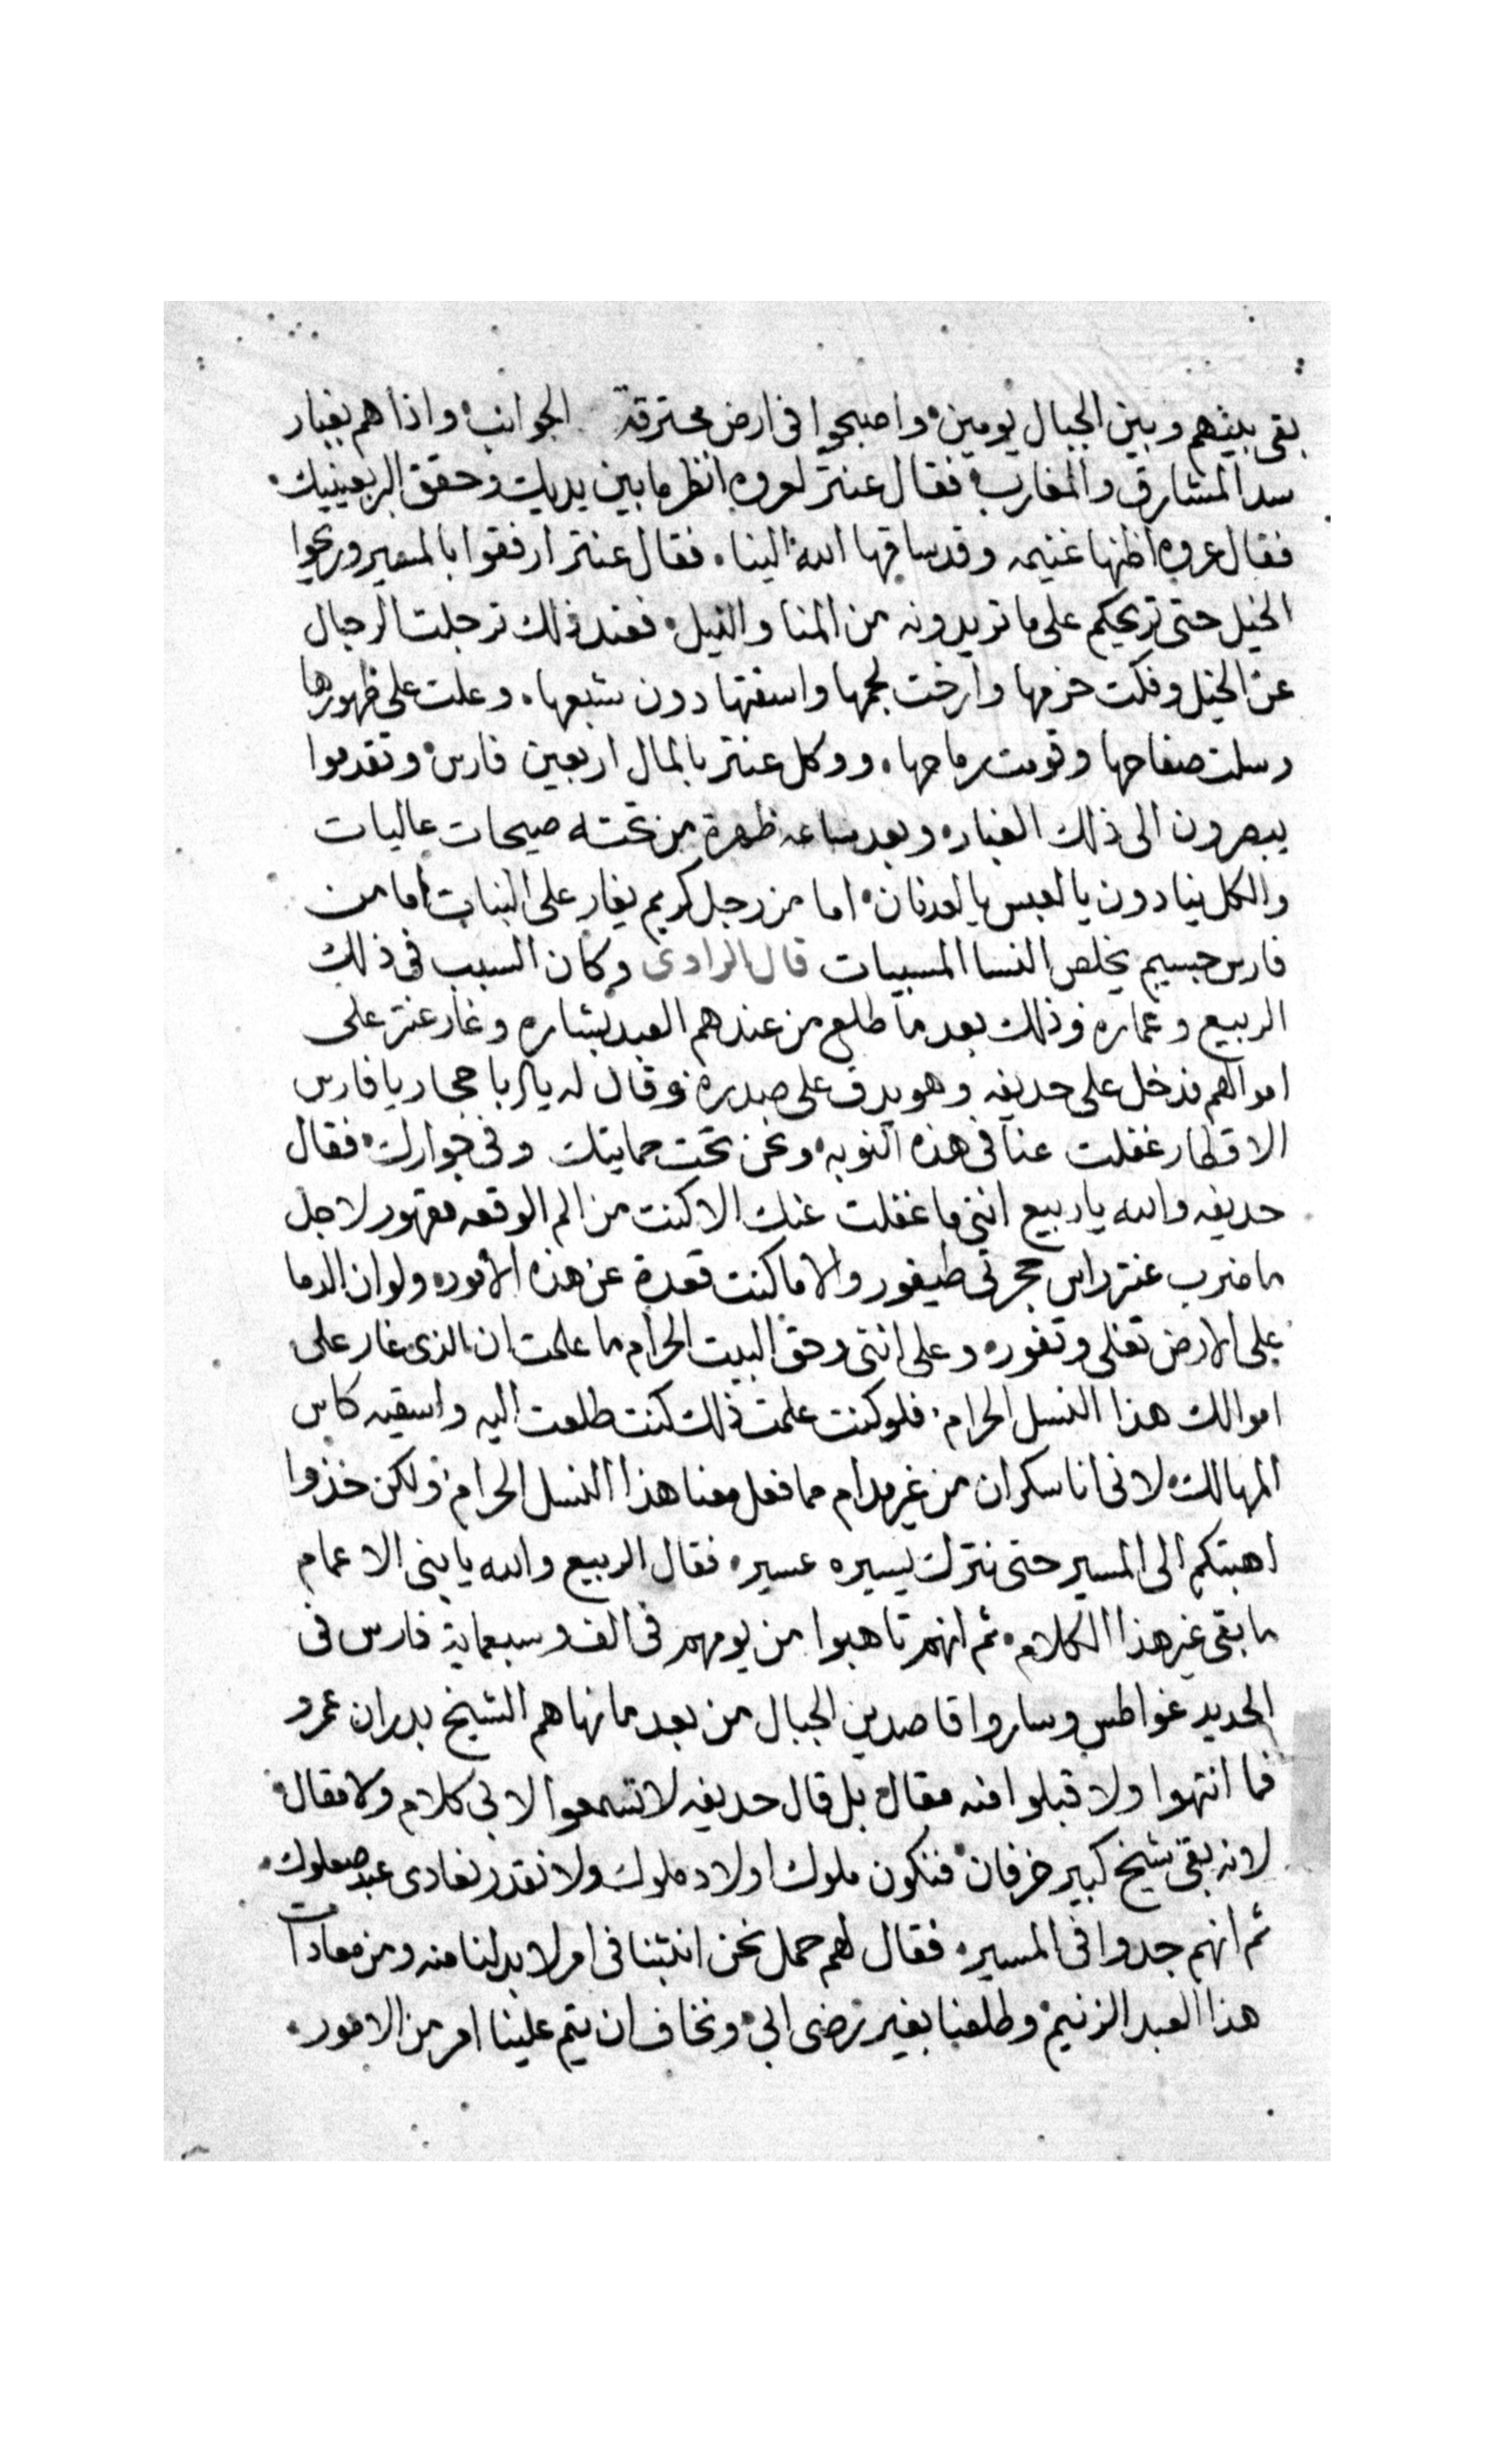 بقى بينهم وبين الجبال يومين واصبحوا فى ارض محترقة الجوانب واذا هم بغبار
سد المشارق والمغارب فقال عنتر لعروه انظر ما بين يديك وحقق البر بعينيك
فقال عروه اظنها غنيمه وقد ساقها الله الينا فقال عنتر ارفقوا بالمسير وريحوا
الخيل حتى تريحكم على ما تريدونه من المنا والنيل فعند ذلك ترجلت الرجال
عن الخيل وفكت حزمها وارخت لجمها واسقتها دون شبعها وعلت على ظهورها
وسلت صفاحها وقومت رماحها ووكل عنتر بالمال اربعين فارس وتقدموا
يبصرون الى ذلك الغبار وبعد ساعه ظهرة من تحته صيحات عاليات
والكل ينادون يا لعبس يا لعدنان اما من رجل كريم يغار على البنات اما من
فارس جسيم يخلص النسا المسبيات قال الراوى وكان السبب فى ذلك
الربيع وعماره وذلك بعد ما طلع من عندهم العبد بشاره وغار عنتر على
اموالهم فدخل على حديفه وهو يدق على صدره وقال له يا ابا حجار يا فارس
الاقطار غفلت عنا فى هذه النوبه ونحن تحت حمايتك وفى جوارك فقال
حديفه والله يا ربيع اننى ما غفلت عنك الا كنت من الم الوقعه مقهور لاجل
ما ضرب عنتر راس حجرتى طيفور والا ما كنت قعدة عن هذه الامور ولو ان الدما
على الارض تغلى وتفور وعلى اننى وحق البيت الحرام ما علمت ان الذى غار على
اموالك هذا النسل الحرام فلو كنت علمت ذلك كنت طلعت اليه واسقيه كاس
المهالك لانى انا سكران من غير مدام مما فعل معنا هذا النسل الحرام ولكن خذوا
اهبتكم الى المسير حتى نترك يسيره عسير فقال الربيع والله يا بنى الاعمام
ما بقى غير هذا الكلام ثم انهم تاهبوا من يومهم فى الف وسبعماية فارس فى
الحديد غواطس وساروا قاصدين الجبال من بعد ما نهاهم الشيخ بدران عمرو
فما انتهوا ولا قبلوا منه مقال بل قال حديفه لا تسمعوا لابى كلام ولا مقال
لانه بقى شيخ كبير خرفان فنكون ملوك اولاد ملوك ولا نقدر نعادى عبد صعلوك
ثم انهم جدوا فى المسير فقال لهم حمل نحن انشبنا فى امر لا بد لنا منه ومن معادات
هذا العبد الزنيم وطلعنا بغير رضى ابى ونخاف ان يتم علينا امر من الامور